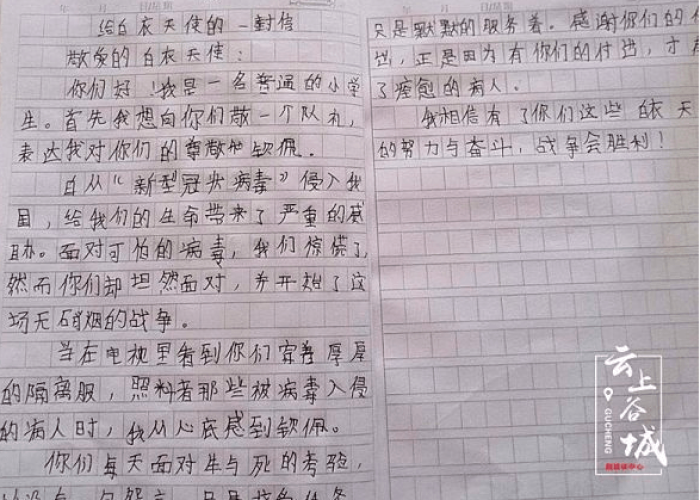 给白衣天使的一封信
敬爱的白衣天使：
你们好！我是一名普通的小学
生。首先我想向你们敬一个队礼，
表达我对你们的尊敬和钦佩.
自从“新型冠状病毒”侵入我
国，给我们的生命带来了严重的威
胁。面对可怕的病毒，我们惊慌了，
然而你们却坦然面对，并开始了这
场无硝烟的战争。
当在电视里看到你们穿着厚厚
的隔离服，照料着那些被病毒入侵
的病人时，我从心底感到钦佩。
你们每天面对生与死的考验，
没有一句怨言，只是
只是默默的服务着。感谢你们的
出，正是因为有你们的付出，才
了痊愈的病人．
我相信有了你们这些白衣天
的努力与奋斗，战争会胜利！
云上谷城
GUCHENG
融媒体中心